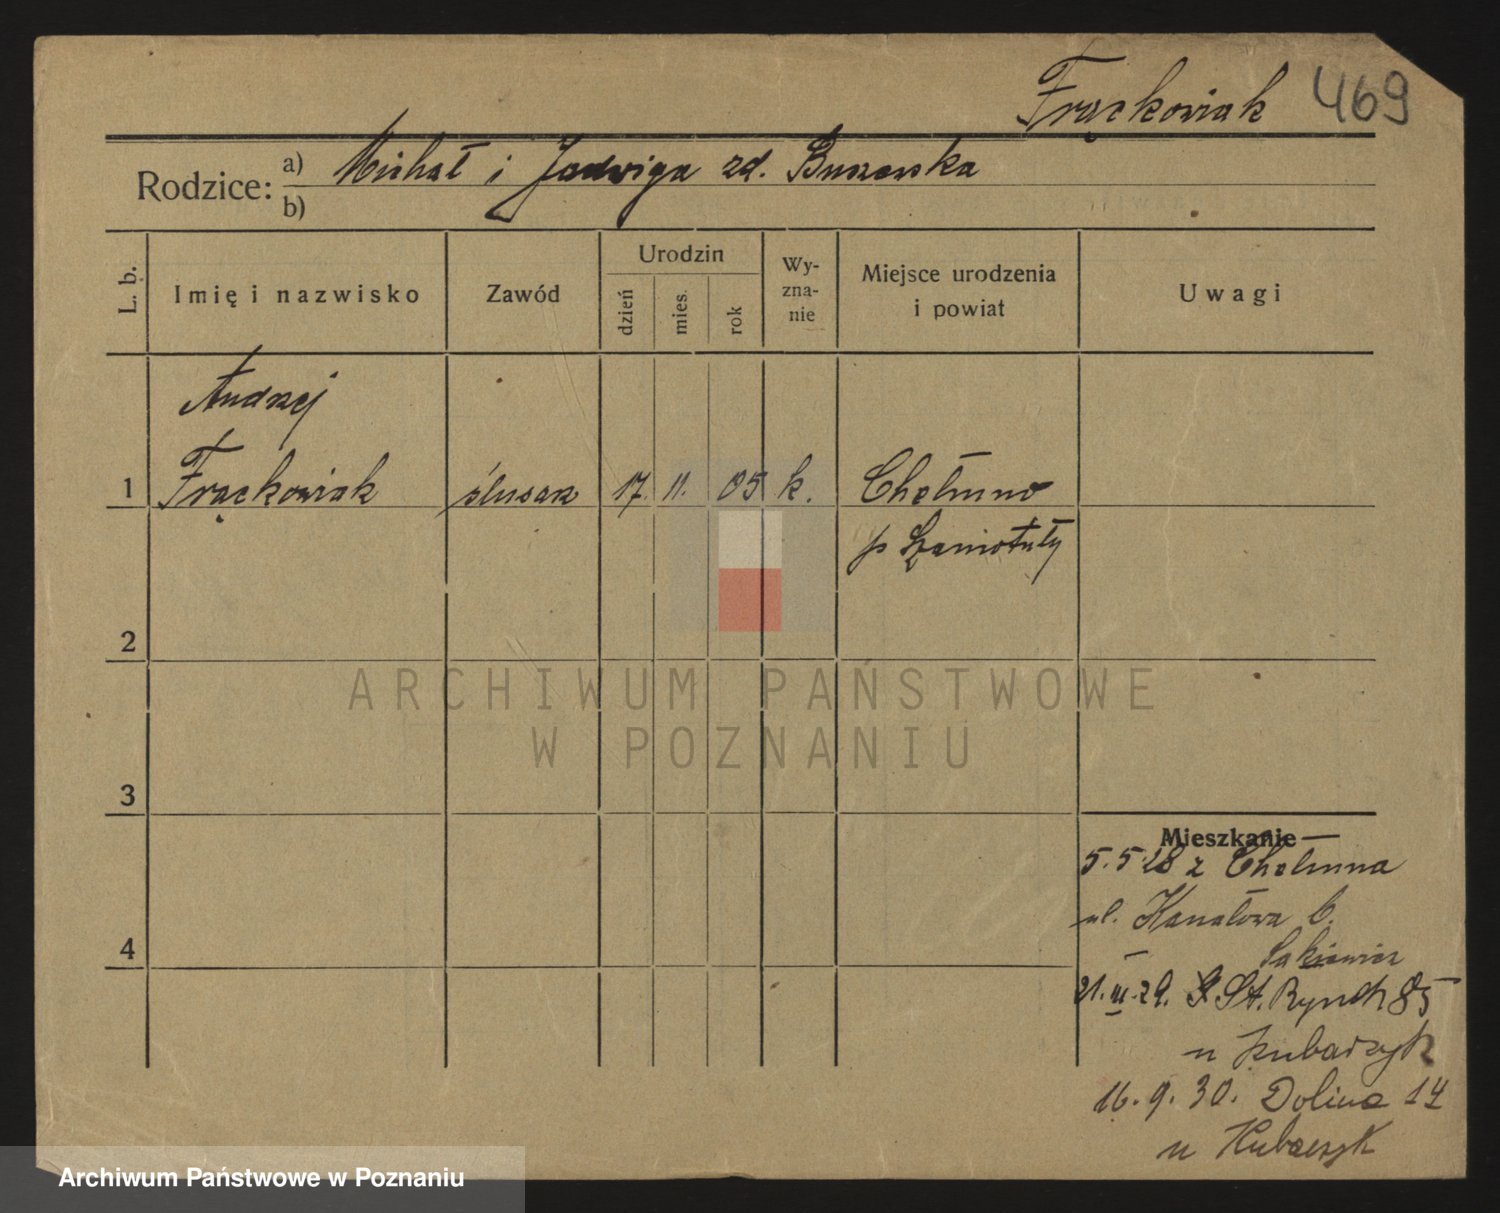 Frąckowiak 469
Rodzice: a) Michał i Jadwiga zd. Buszewska
b)
L. b.
Imię i nazwisko
Zawód
Urodzin
dzień
mies.
rok
Wy-
zna-
nie
Miejsce urodzenia
i powiat
Uwagi
Andrzej
1 Frąckowiak ślusarz 17. 11. 05 k. Chełmno
p Szamotuły
2
ARCHIWUM PAŃSTWOWE
W POZNANIU
3
Mieszkanie
5.5 28 z Chełmna
ul. Kanałowa 6.
21.III.29. St. Rynek 85
u Kubaszyk
16.9.30. Dolina 14
u Kubaszyk
4
Archiwum Państwowe w Poznaniu